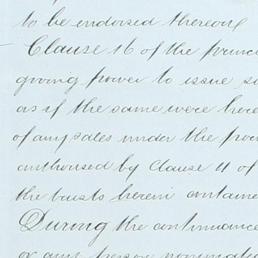 to be endorsed thereon
Clause 16 of the princi
giving power to issue
as if the same were here
of any sales under the pow
authorised by Clause 11 of
the trusts herein containe
During the continuance
or any person nominate